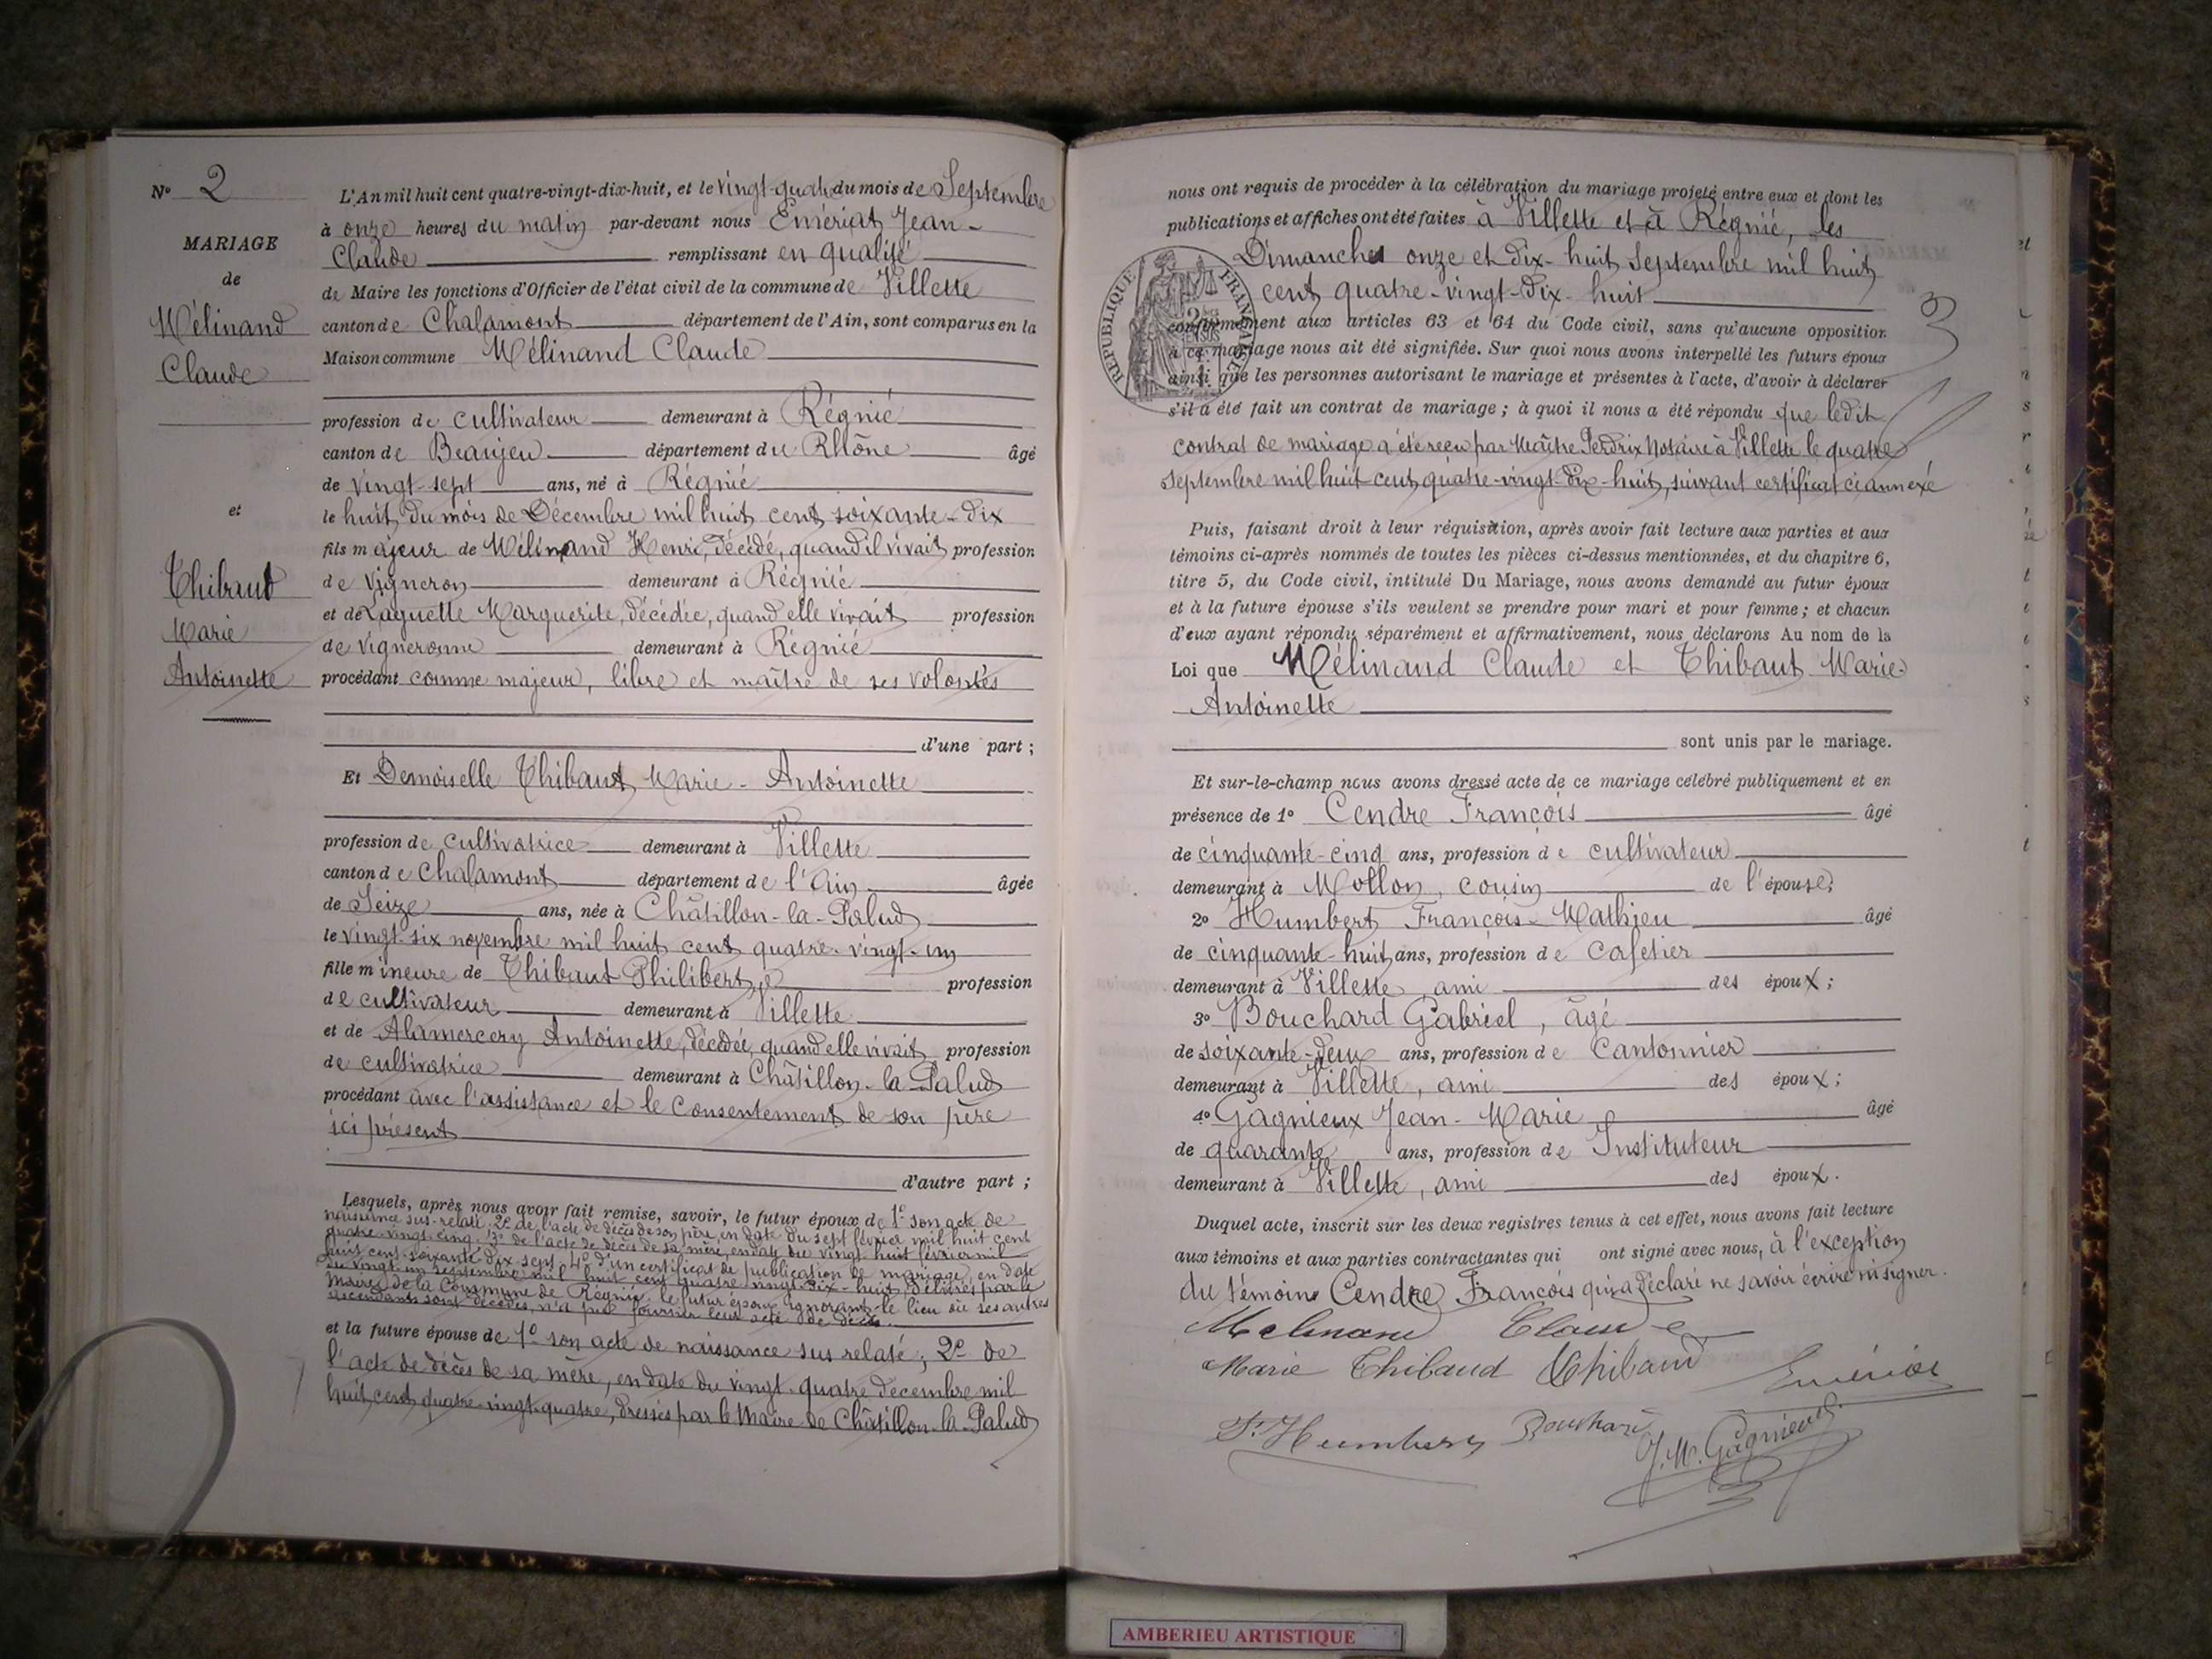 N° 2
MARIAGE
de
Mélinand
Claude
et
Thibaut
Marie
Antoinette
L'An mil huit cent quatre-vingt-dix-huit, et le vingt-quatre du mois de Septembre
à onze heures du matin par-devant nous Emériat Jean-
Claude remplissant en qualité
de Maire les fonctions d'Officier de l'état civil de la commune de Villette
canton de Chalamont département de l'Ain, sont comparus en la
Maison commune Mélinand Claude
profession de cultivateur demeurant à Régnié
canton de Beaujeu département du Rhône âgé
de vingt-sept ans, né à Régnié
le huit du mois de Décembre mil huit cent soixante-dix
fils majeur de Mélinand Henri, décédé, quand il vivait profession
de vigneron demeurant à Régnié
et de Laguette Marguerite, décédée, quand elle vivait profession
de vigneronne demeurant à Régnié
procédant comme majeur, libre et maître de ses volontés
d'une part ;
Et Demoiselle Thibaut Marie-Antoinette
profession de cultivatrice demeurant à Villette
canton de Chalamont département de l'Ain âgée
de Seize ans, née à Châtillon-la-Palud
le vingt-six novembre mil huit cent quatre-vingt-un
fille mineure de Thibaut Philibert, profession
de cultivateur demeurant à Villette
et de Alamercery Antoinette, décédée, quand elle vivait profession
de cultivatrice demeurant à Châtillon-la-Palud
procédant avec l'assistance et le consentement de son père
ici présent
d'autre part ;
Lesquels, après nous avoir fait remise, savoir, le futur époux de 1° son acte de
naissance sus-relaté, 2° de l'acte de décès de son père, en date du sept février mil huit cent
quatre-vingt-cinq, 3° de l'acte de décès de sa mère, en date du vingt-huit février mil
huit cent soixante-dix-sept, 4° d'un certificat de publication de mariage, en date
du vingt-un septembre mil huit cent quatre-vingt-dix-huit, délivrés par le
Maire de la Commune de Régnié, le futur époux ignorant le lieu où ses autres
ascendants sont décédés, n'a pu fournir leur acte de décès.
et la future épouse de 1° son acte de naissance sus relaté ; 2° de
l'acte de décès de sa mère, en date du vingt-quatre décembre mil
huit cent quatre-vingt-quatre, dressés par le Maire de Châtillon-la-Palud
nous ont requis de procéder à la célébration du mariage projeté entre eux et dont les
publications et affiches ont été faites à Villette et à Régnié, les
Dimanches onze et dix-huit Septembre mil huit
cent quatre-vingt-dix-huit
REPUBLIQUE FRANÇAISE
conformément aux articles 63 et 64 du Code civil, sans qu'aucune opposition
à ce mariage nous ait été signifiée. Sur quoi nous avons interpellé les futurs époux
ainsi que les personnes autorisant le mariage et présentes à l'acte, d'avoir à déclarer
s'il a été fait un contrat de mariage ; à quoi il nous a été répondu que ledit
contrat de mariage a été reçu par Maître Perdrix Notaire à Villette le quatre
Septembre mil huit cent quatre-vingt-dix-huit, suivant certificat ci annexé
Puis, faisant droit à leur réquisition, après avoir fait lecture aux parties et aux
témoins ci-après nommés de toutes les pièces ci-dessus mentionnées, et du chapitre 6,
titre 5, du Code civil, intitulé Du Mariage, nous avons demandé au futur époux
et à la future épouse s'ils veulent se prendre pour mari et pour femme ; et chacun
d'eux ayant répondu séparément et affirmativement, nous déclarons Au nom de la
Loi que Mélinand Claude et Thibaut Marie
Antoinette
sont unis par le mariage.
Et sur-le-champ nous avons dressé acte de ce mariage célébré publiquement et en
présence de 1° Cendre François âgé
de cinquante-cinq ans, profession de cultivateur
demeurant à Mollon, cousin de l'épouse;
2° Humbert François-Mathieu âgé
de cinquante-huit ans, profession de cafetier
demeurant à Villette, ami des époux ;
3° Bouchard Gabriel, âgé
de soixante-deux ans, profession de Cantonnier
demeurant à Villette, ami des époux ;
4° Gagnieux Jean-Marie âgé
de quarante ans, profession de Instituteur
demeurant à Villette, ami des époux.
Duquel acte, inscrit sur les deux registres tenus à cet effet, nous avons fait lecture
aux témoins et aux parties contractantes qui ont signé avec nous, à l'exception
du témoins Cendre François qui a déclaré ne savoir écrire ni signer.
Melinand Claude
Marie Thibaud Thibaud Emériat
F. Humbert Bouchard J. M. Gagnieux
3
AMBERIEU ARTISTIQUE